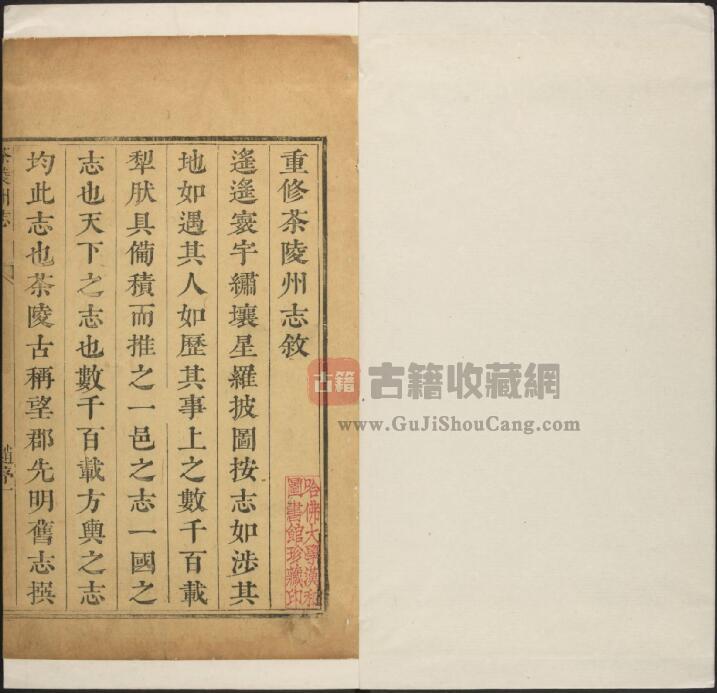 重修茶陵州志敘
遙遙寰宇繡壤星羅披圖按志如涉其
地如遇其人如歷其事上之數千百載
犁肰具備積而推之一邑之志一國之
志也天下之志也數千百載方輿之志
均此志也茶陵古稱望郡先明舊志撰
茶陵州志
趙序一
哈佛大學漢和
圖書館珍藏印
古籍
古籍收藏網
www.GuJiShouCang.com